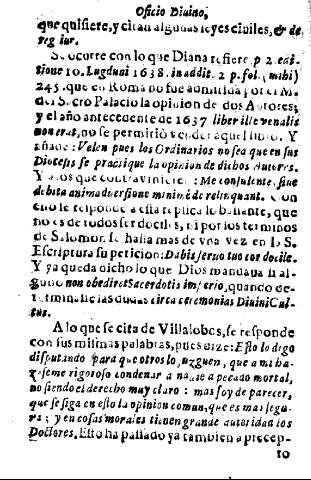 Oficio Diuino,
que quisiere, y citan algunas leyes ciuiles, & de
reg iur.
Socorre con lo que Diana refiere p 2. edi-
tione 10. Lugduni 1638. in addit. 2 p. fol. (mihi)
245. que en Roma no fue admitida por el M.
del Sacro Palacio la opinion de dos Autores,
y el año antecedente de 1637 liber ille venalis
non erat, no se permitió vender aquel libro. Y
añade: Velen pues los Ordinarios no sea que en sus
Diocesis se practique la opinion de dichos Autores.
Y a los que contravinieren: Me consulente, sine
debita animaduersione minimè relinquant. Con
ello le responde a esta replica lo bastante, que
no es de todos ser dociles, ni por los terminos
de Salomon se halla mas de vna vez en la S.
Escriptura su peticion: Dabis seruo tuo cor docile.
Y ya queda dicho lo que Dios mandaua si al-
guno non obediret Sacerdotis imperio, quando de-
terminasse las dudas circa ceremonias Diuini Cul-
tus.
A lo que se cita de Villalobos, se responde
con sus mismas palabras, pues dize: Esto lo digo
disputando para que otros lo juzguen, que a mi ha-
zeseme rigoroso condenar a nadie a pecado mortal,
no siendo el derecho muy claro: mas soy de parecer,
que se siga en esto la opinion comun, que es mas segu-
ra; y en cosas morales tienen grande autoridad los
Doctores. Esto ha passado ya tambien a precep-
to